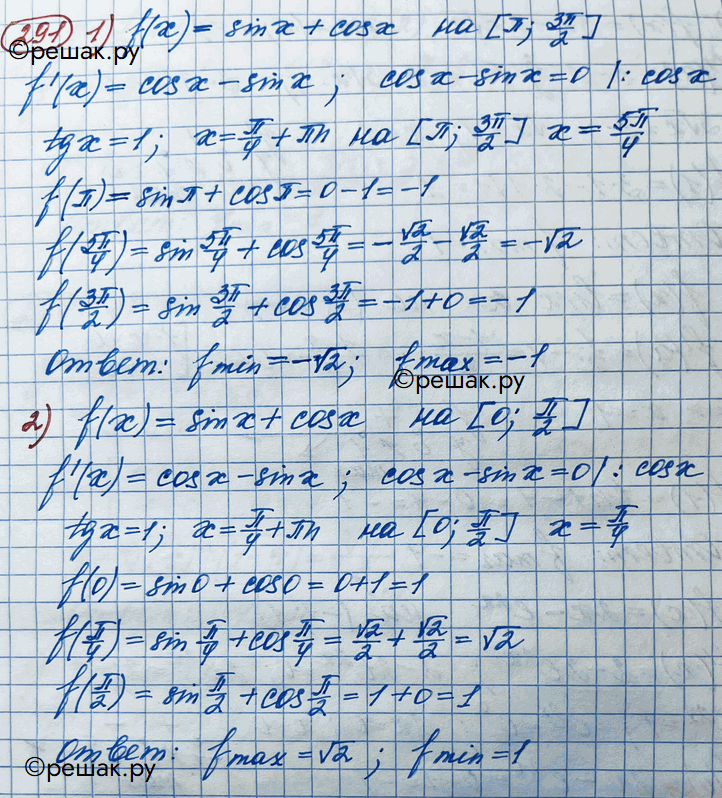 291 1) f(x) = sinx + cosx на [π; 3π/2]
©решак.ру
f'(x) = cosx - sinx ; cosx - sinx = 0 |: cosx
tgx = 1; x = π/4 + πn на [π; 3π/2] x = 5π/4
f(π) = sinπ + cosπ = 0 - 1 = -1
f(5π/4) = sin 5π/4 + cos 5π/4 = -√2/2 - √2/2 = -√2
f(3π/2) = sin 3π/2 + cos 3π/2 = -1 + 0 = -1
Ответ: fmin = -√2; fmax = -1
©решак.ру
2) f(x) = sinx + cosx на [0; π/2]
f'(x) = cosx - sinx ; cosx - sinx = 0 |: cosx
tgx = 1; x = π/4 + πn на [0; π/2] x = π/4
f(0) = sin0 + cos0 = 0 + 1 = 1
f(π/4) = sin π/4 + cos π/4 = √2/2 + √2/2 = √2
f(π/2) = sin π/2 + cos π/2 = 1 + 0 = 1
Ответ: fmax = √2 ; fmin = 1
©решак.ру